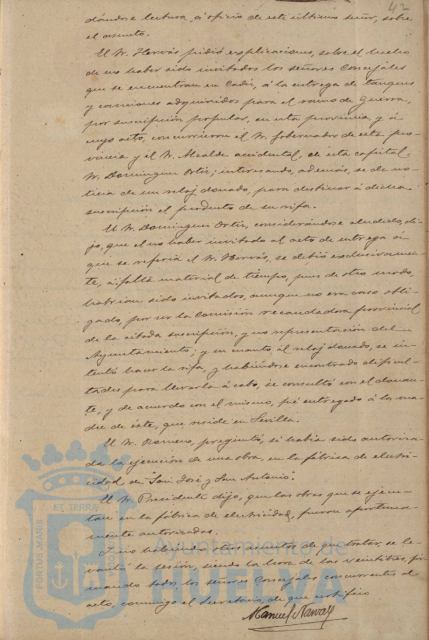 42
dándose lectura, á oficio de este último señor, sobre
el asunto.
El Sr. Hervás pidió explicaciones, sobre el hecho
de no haber sido invitados los señores Concejales
que se encuentran en Cadiz, á la entrega de tanques
y camiones adquiridos para el ramo de Guerra,
por suscripción popular, en esta provincia, y á
cuyo acto, concurrieron el Sr. Gobernador de esta pro-
vincia y el Sr. Alcalde accidental, de esta capital,
Sr. Dominguez Ortiz; interesando, además, se dé no-
ticia de un reloj donado, para destinar á dicha
suscripción el producto de su rifa.
El Sr. Dominguez Ortiz, considerándose aludido, di-
jo, que el no haber invitado al acto de entrega á
que se refería el Sr. Hervás, se debió exclusivamen-
te, á falta material de tiempo, pues de otro modo,
habrían sido invitados, aunque no era caso obli-
gado, por ser la Comisión recaudadora provincial
de la citada suscripción, y no representación del
Ayuntamiento; y en cuanto al reloj donado, se in-
tentó hacer la rifa, y habiéndose encontrado dificul-
tades para llevarla á cabo, se consultó con el donan-
te, y de acuerdo con el mismo, fué entregado á la ma-
dre de éste, que reside en Sevilla.
El Sr. Romero, preguntó, si había sido autoriza-
da la ejecución de una obra, en la fábrica de electri-
cidad de "San José y San Antonio".
El Sr. Presidente dijo, que las obras que se ejecu-
tan en la fábrica de electricidad, fueron oportuna-
mente autorizadas.
Y no habiendo otros asuntos de que tratar, se le-
vantó la sesión, siendo la hora de las veintitres, fir-
mando todos los señores Concejales concurrentes al
acto, conmigo el Secretario, de que certifico
Manuel Narváez
PORTUS MARIS ET TERRÆ
Ayuntamiento de
HUELVA